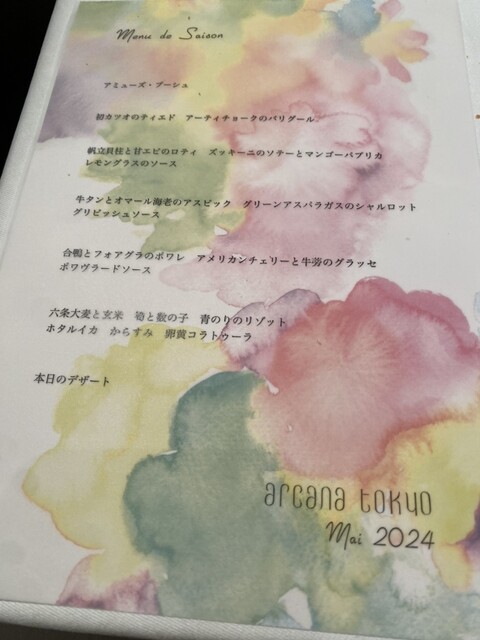 Menu de Saison
アミューズ・ブーシュ
初カツオのティエド　アーティチョークのバリグール
帆立貝柱と甘エビのロティ　ズッキーニのソテーとマンゴーパプリカ
レモングラスのソース
牛タンとオマール海老のアスピック　グリーンアスパラガスのシャルロット
グリビッシュソース
合鴨とフォアグラのポワレ　アメリカンチェリーと牛蒡のグラッセ
ポワヴラードソース
六条大麦と玄米　筍と数の子　青のりのリゾット
ホタルイカ　からすみ　卵黄コラトゥーラ
本日のデザート
arcana tokyo
Mai 2024